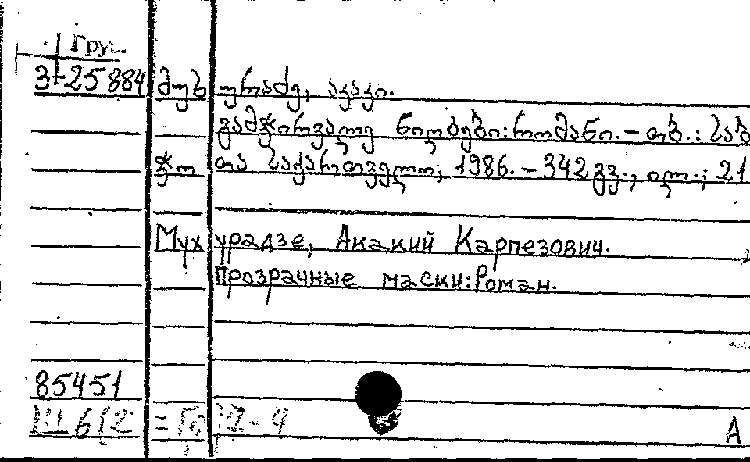 Гру.
3-25884 მუხურაძე, აკაკი.
გამჭირვალე ნიღბები: რომანი. - თბ.: საბ
ჭოთა საქართველო, 1986. - 342 გვ., ილ.; 21
Мухурадзе, Акакий Карпезович.
Прозрачные маски: Роман.
85451
А